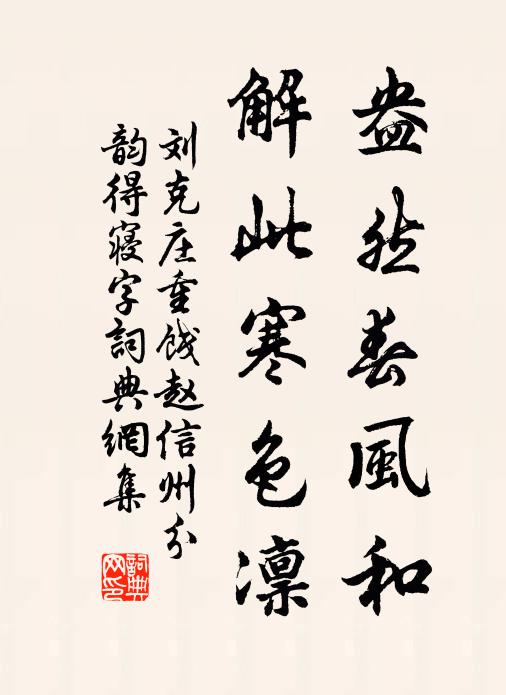 盎然春風和
解此寒色凛
刘克庄重饯赵信州分
韵得寝字詞典網集
詞典网印